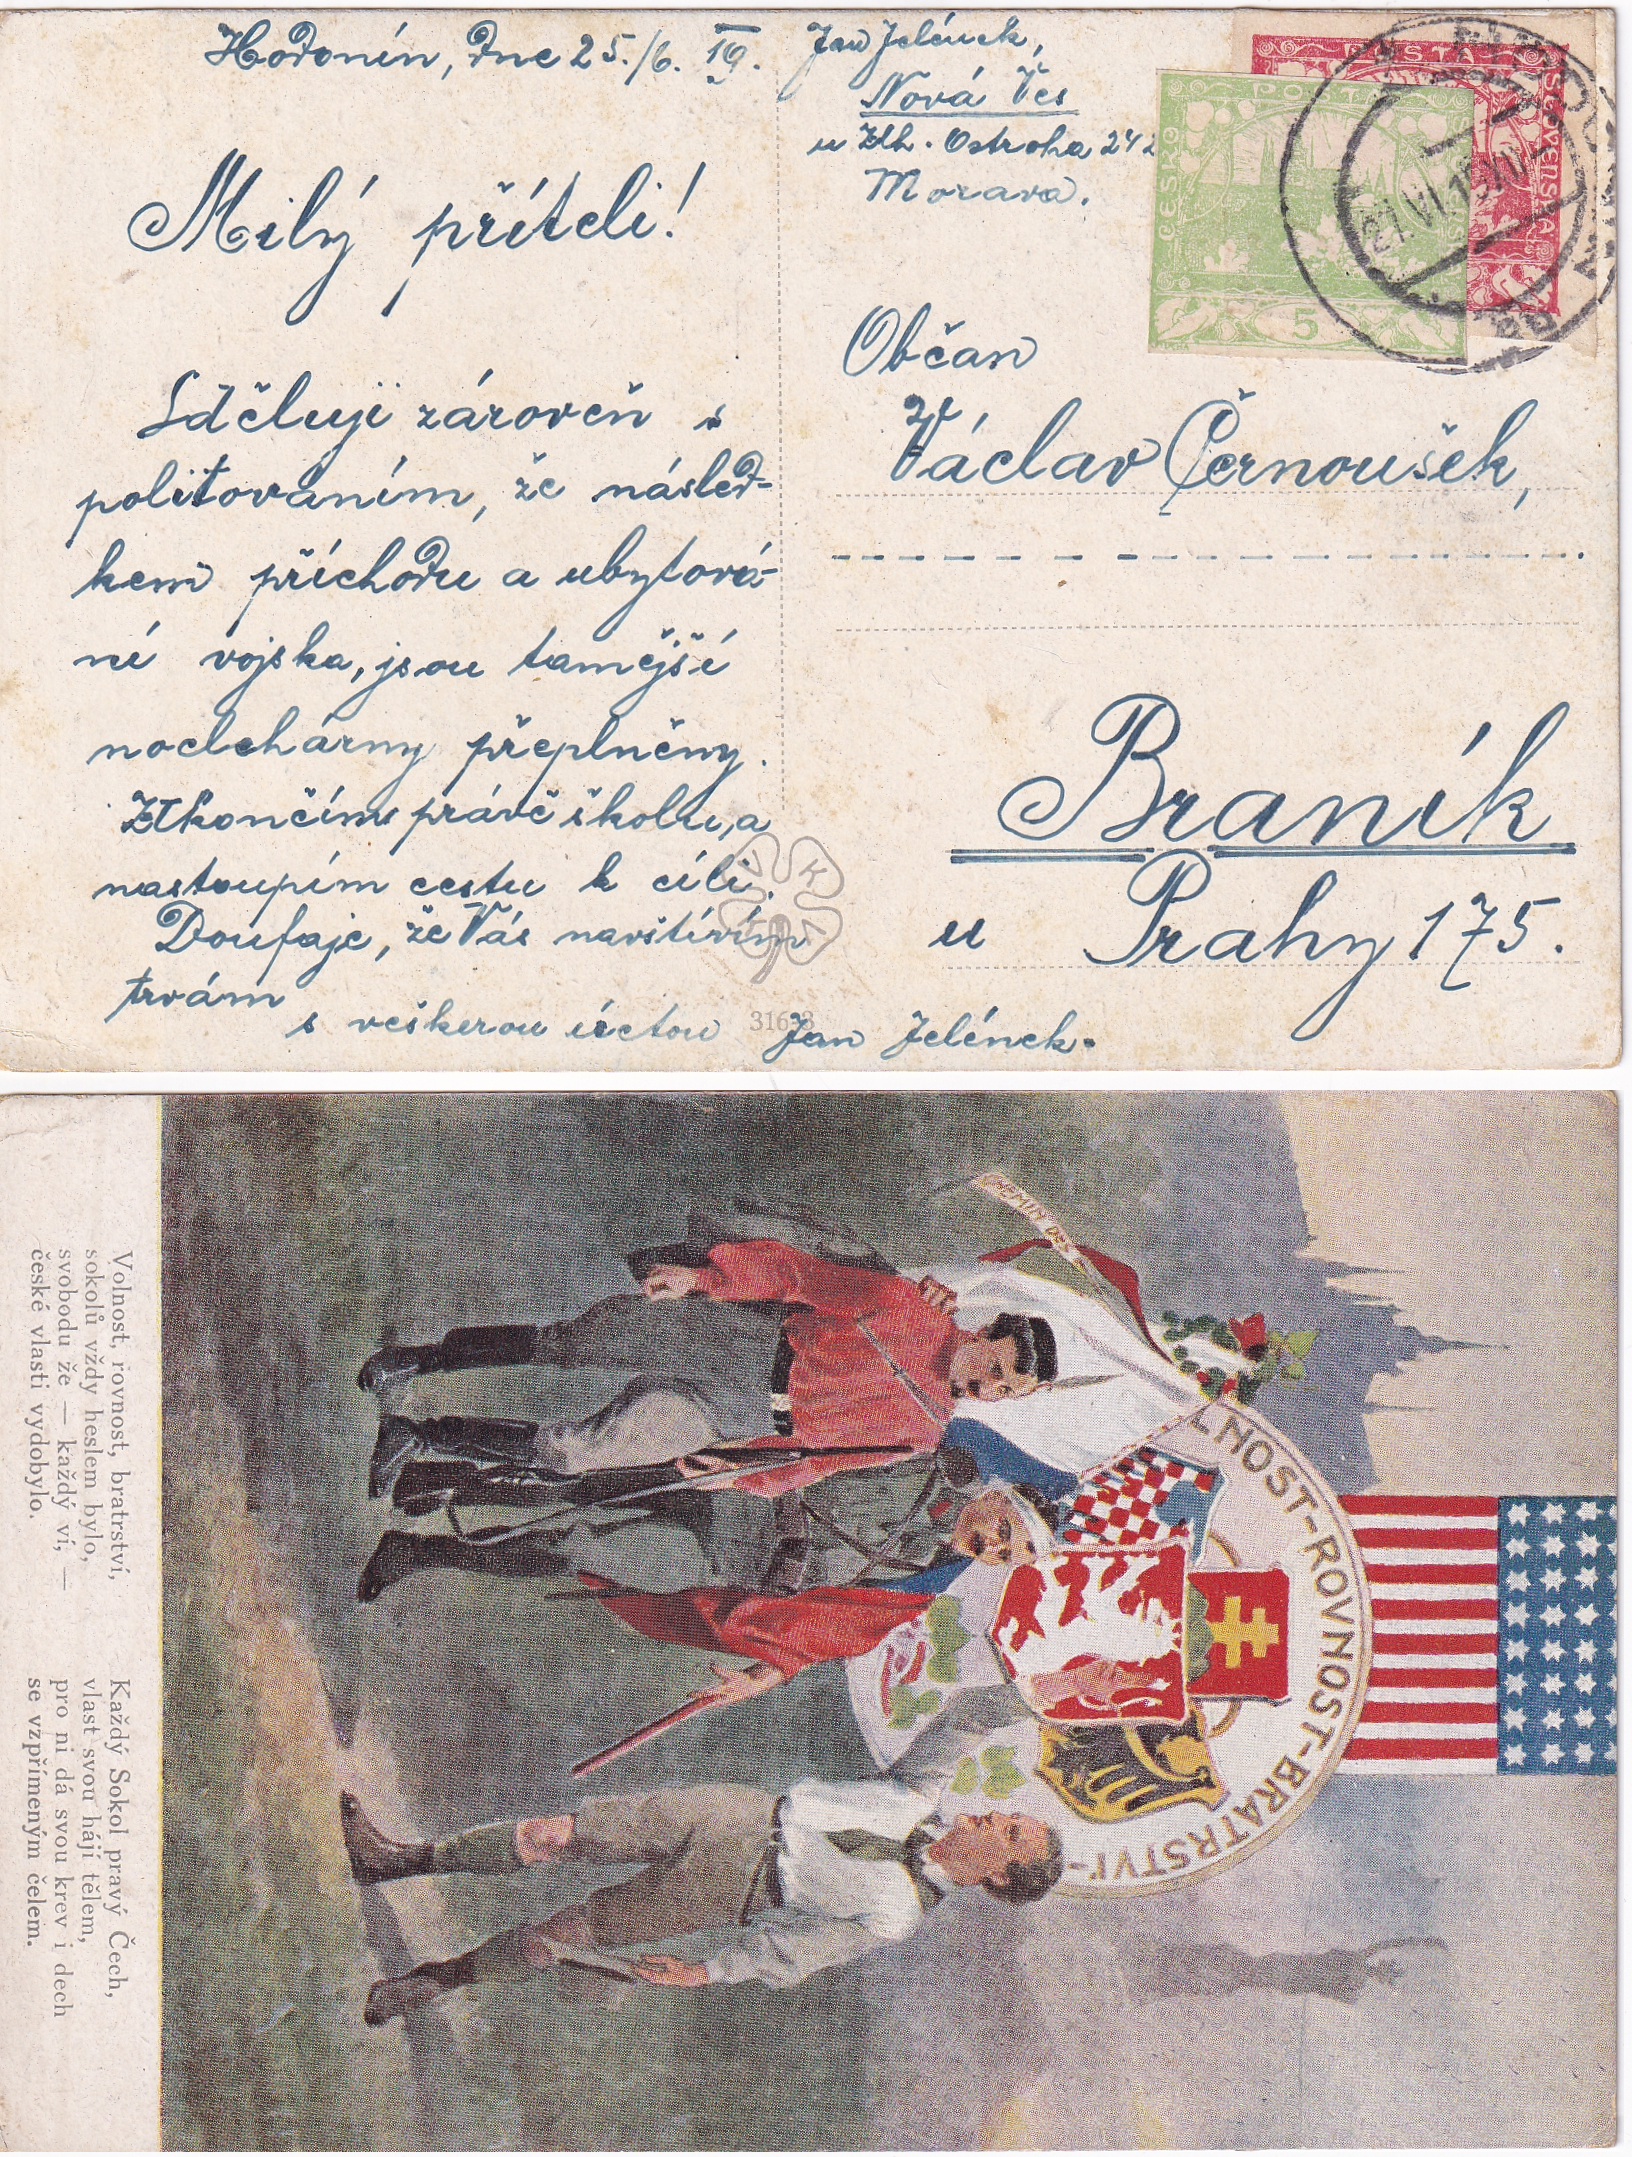 Hodonín, dne 25./6. 19.
Milý příteli!
Sděluji zároveň s
politováním, že násled-
kem příchodu a ubytová-
ní vojska, jsou tamější
noclehárny přeplněny.
Ukončím právě školu, a
nastoupím cestu k cíli.
Doufaje, že Vás navštívím
trvám
s veškerou úctou Jan Jelének.
31633
Jan Jelének,
Nová Ves
u Uh. Ostroha 242
Morava.
POŠTA
ČESKO
SLOVENSKÁ
POŠTA
ČESKO
5
27.VI.19
Občan
Václav Černoušek,
Braník
u Prahy 175.
NEMIN OSK
VOLNOST-ROVNOST-BRATRSTVÍ-
Volnost, rovnost, bratrství,
sokolů vždy heslem bylo,
svobodu že — každý ví, —
české vlasti vydobylo.
Každý Sokol pravý Čech,
vlasť svou hájí tělem,
pro ni dá svou krev i dech
se vzpřímeným čelem.